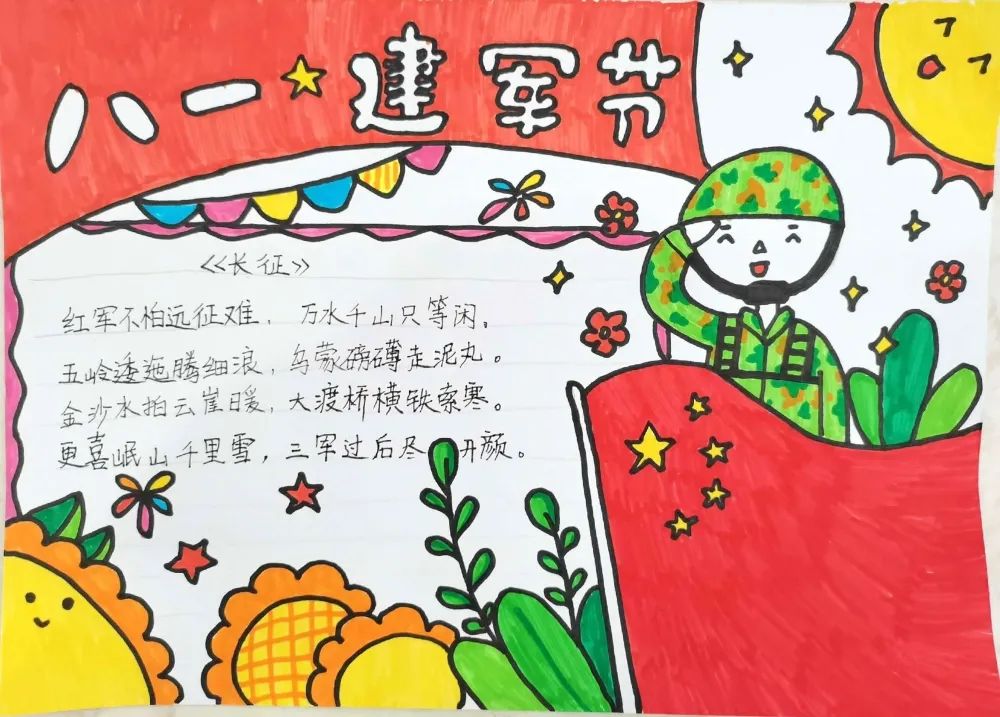 八一建军节
《长征》
红军不怕远征难，万水千山只等闲。
五岭逶迤腾细浪，乌蒙磅礴走泥丸。
金沙水拍云崖暖，大渡桥横铁索寒。
更喜岷山千里雪，三军过后尽开颜。